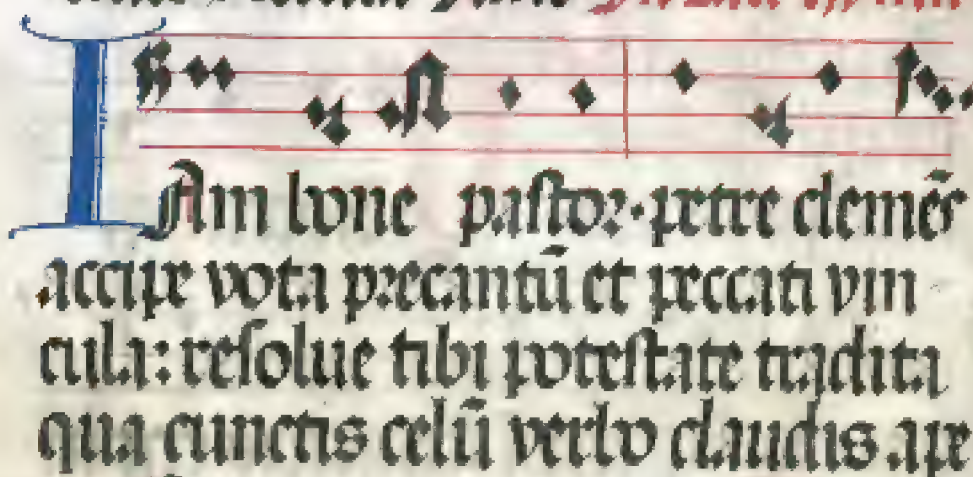 IAm bone pastor. petre clemēs
accipe vota precantū et peccati vin
cula: resolue tibi potestate tradita
qua cunctis celū verbo claudis ape